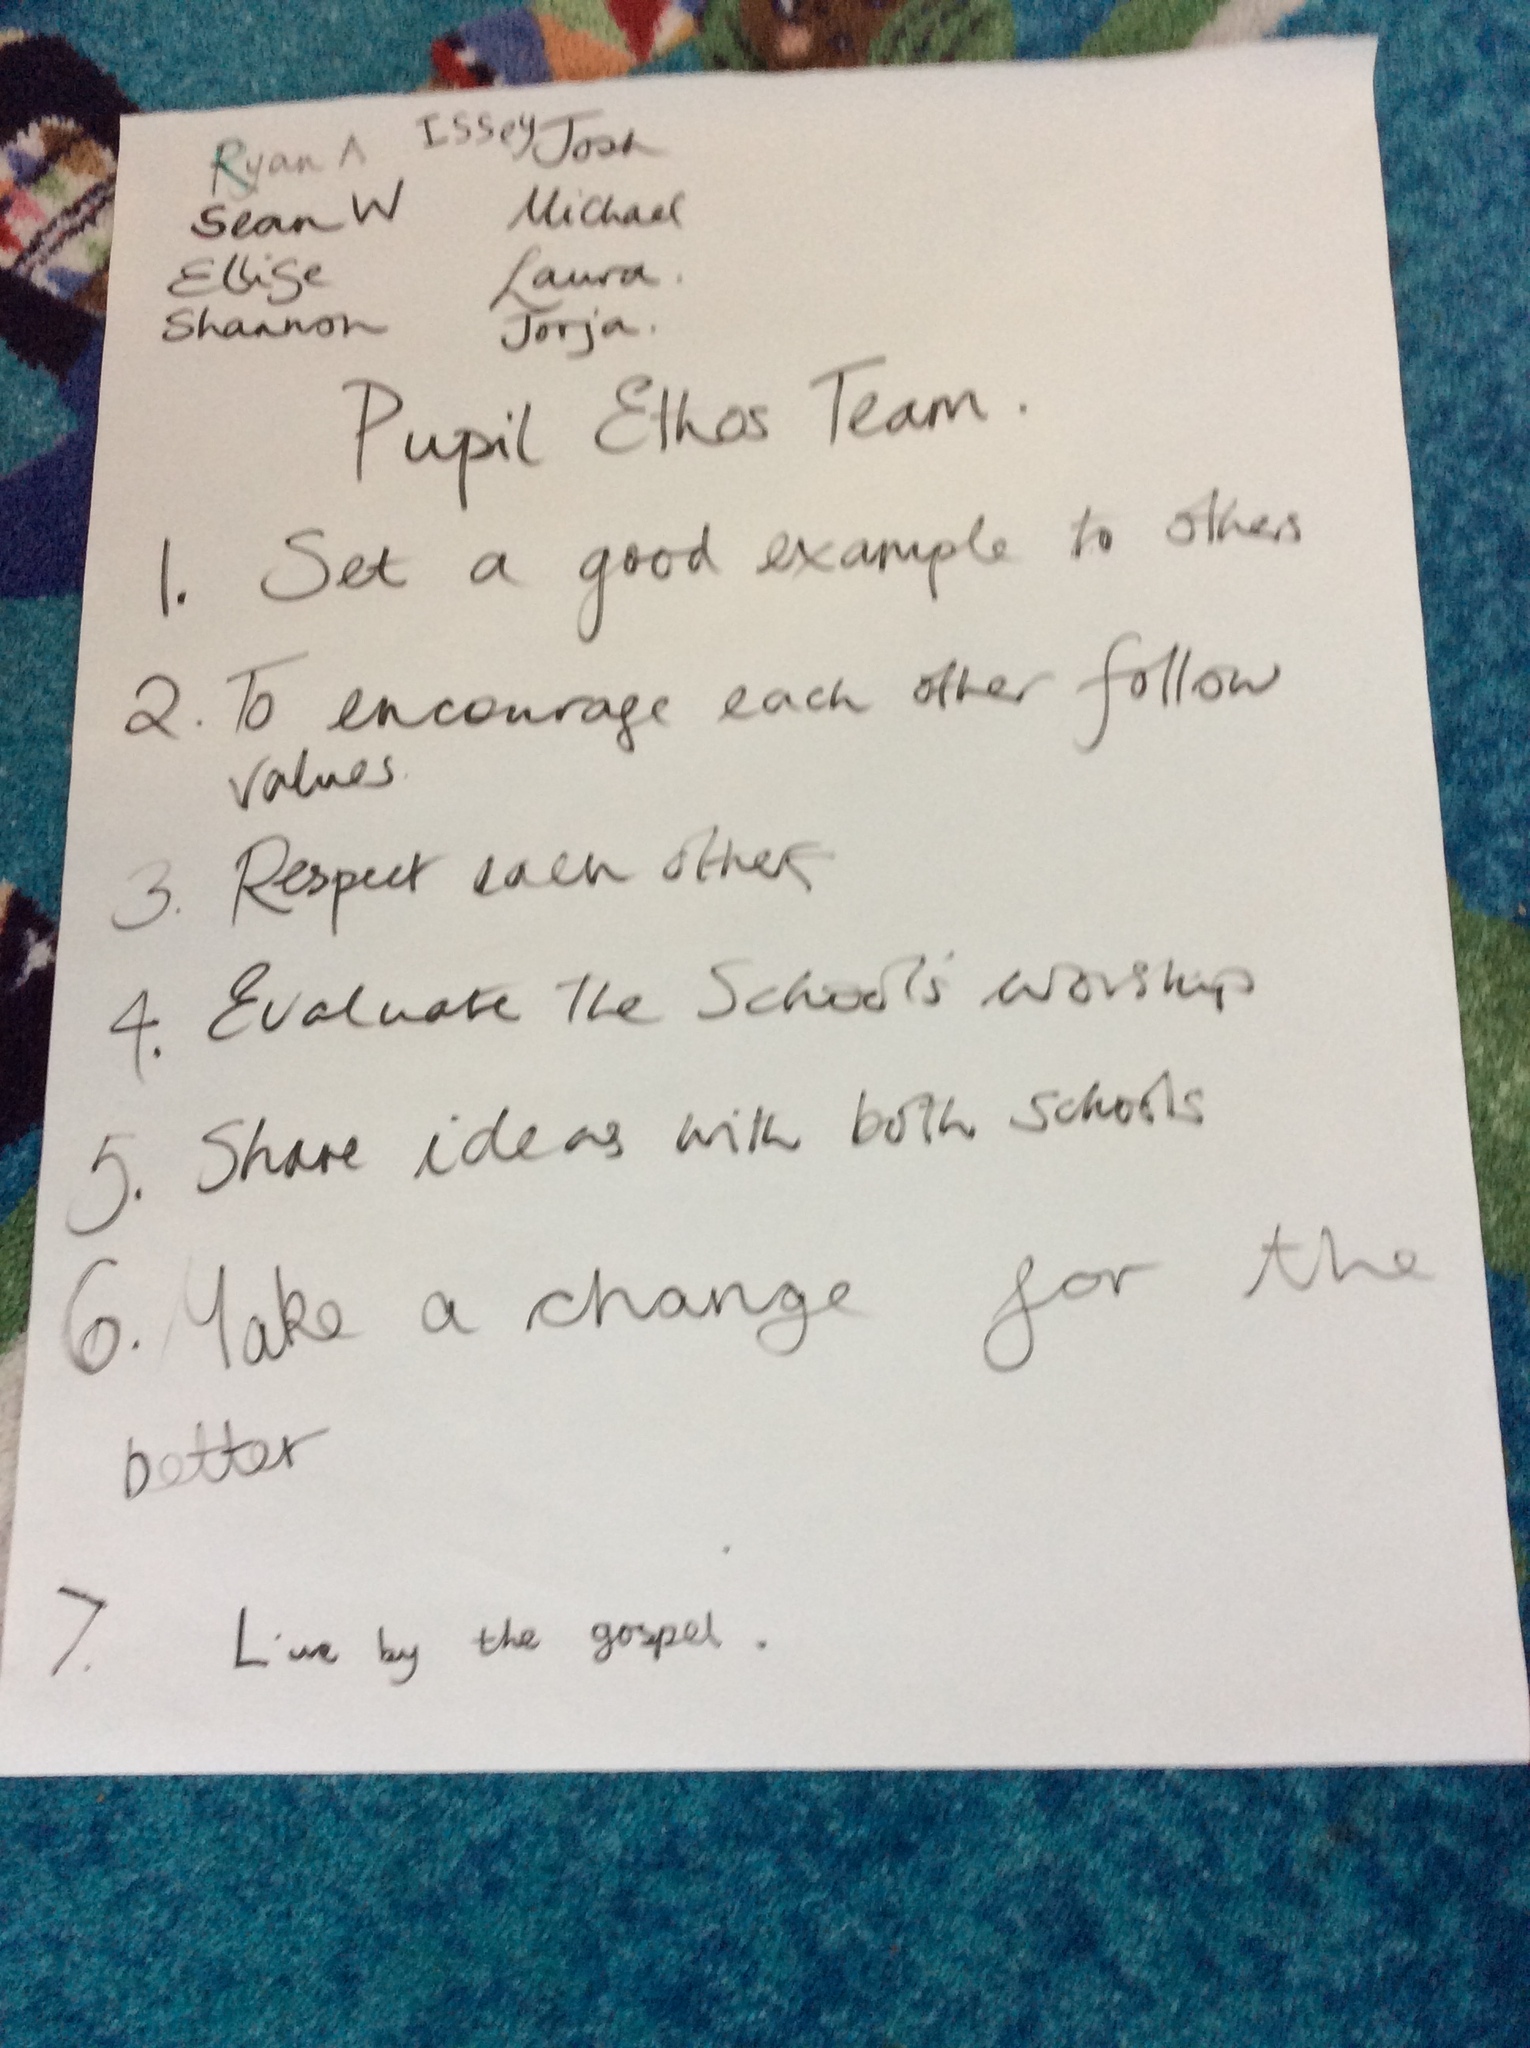 Ryan A Issey Josh
Sean W Michael
Laura.
Shannon Jorja.
Pupil Ethos Team.
1. Set a good example to others
2. To encourage each other follow
values.
3. Respect each other
4. Evaluate the School's worship
5. Share ideas with both schools
6. Make a change for the
better
7. Live by the gospel.